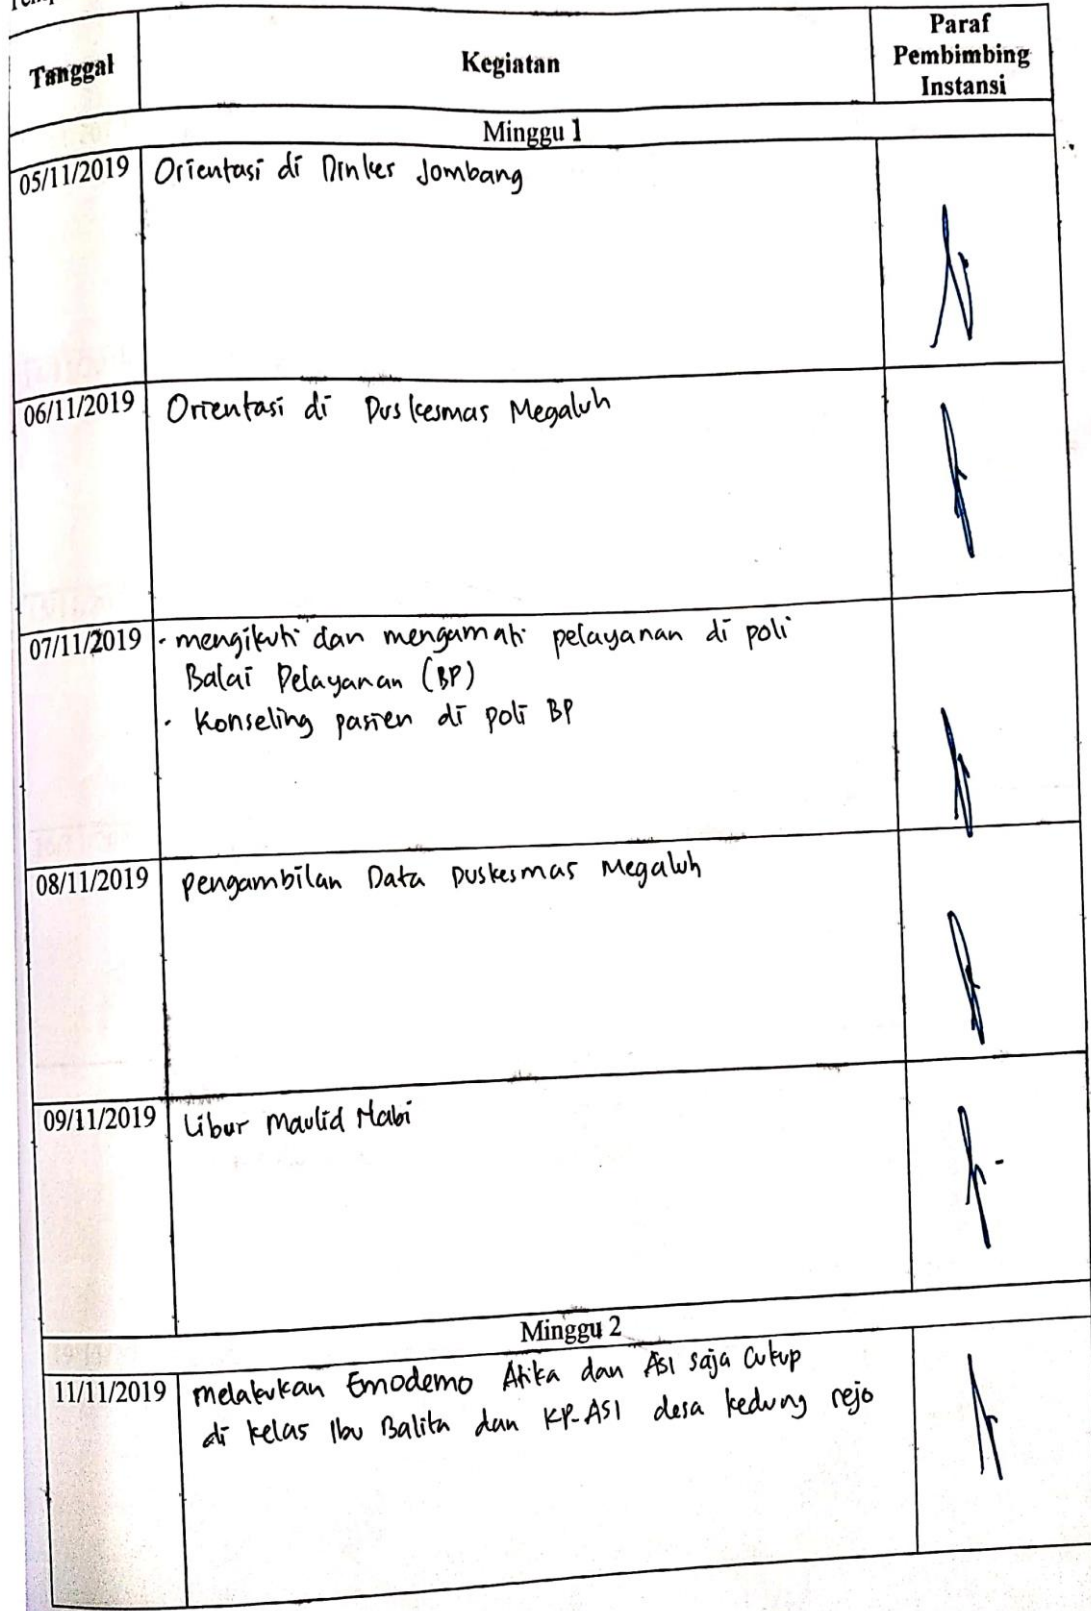 Tanggal
Kegiatan
Paraf
Pembimbing
Instansi
Minggu 1
05/11/2019 Orientasi di Dinkes Jombang
06/11/2019 Orientasi di Puskesmas Megaluh
07/11/2019 · mengikuti dan mengamati pelayanan di poli
Balai Pelayanan (BP)
· Konseling pasien di poli BP
08/11/2019 pengambilan Data Puskesmas Megaluh
09/11/2019 Libur Maulid Nabi
Minggu 2
11/11/2019 melakukan Emodemo Atika dan ASI saja Cukup
di kelas Ibu Balita dan KP-ASI desa kedung rejo